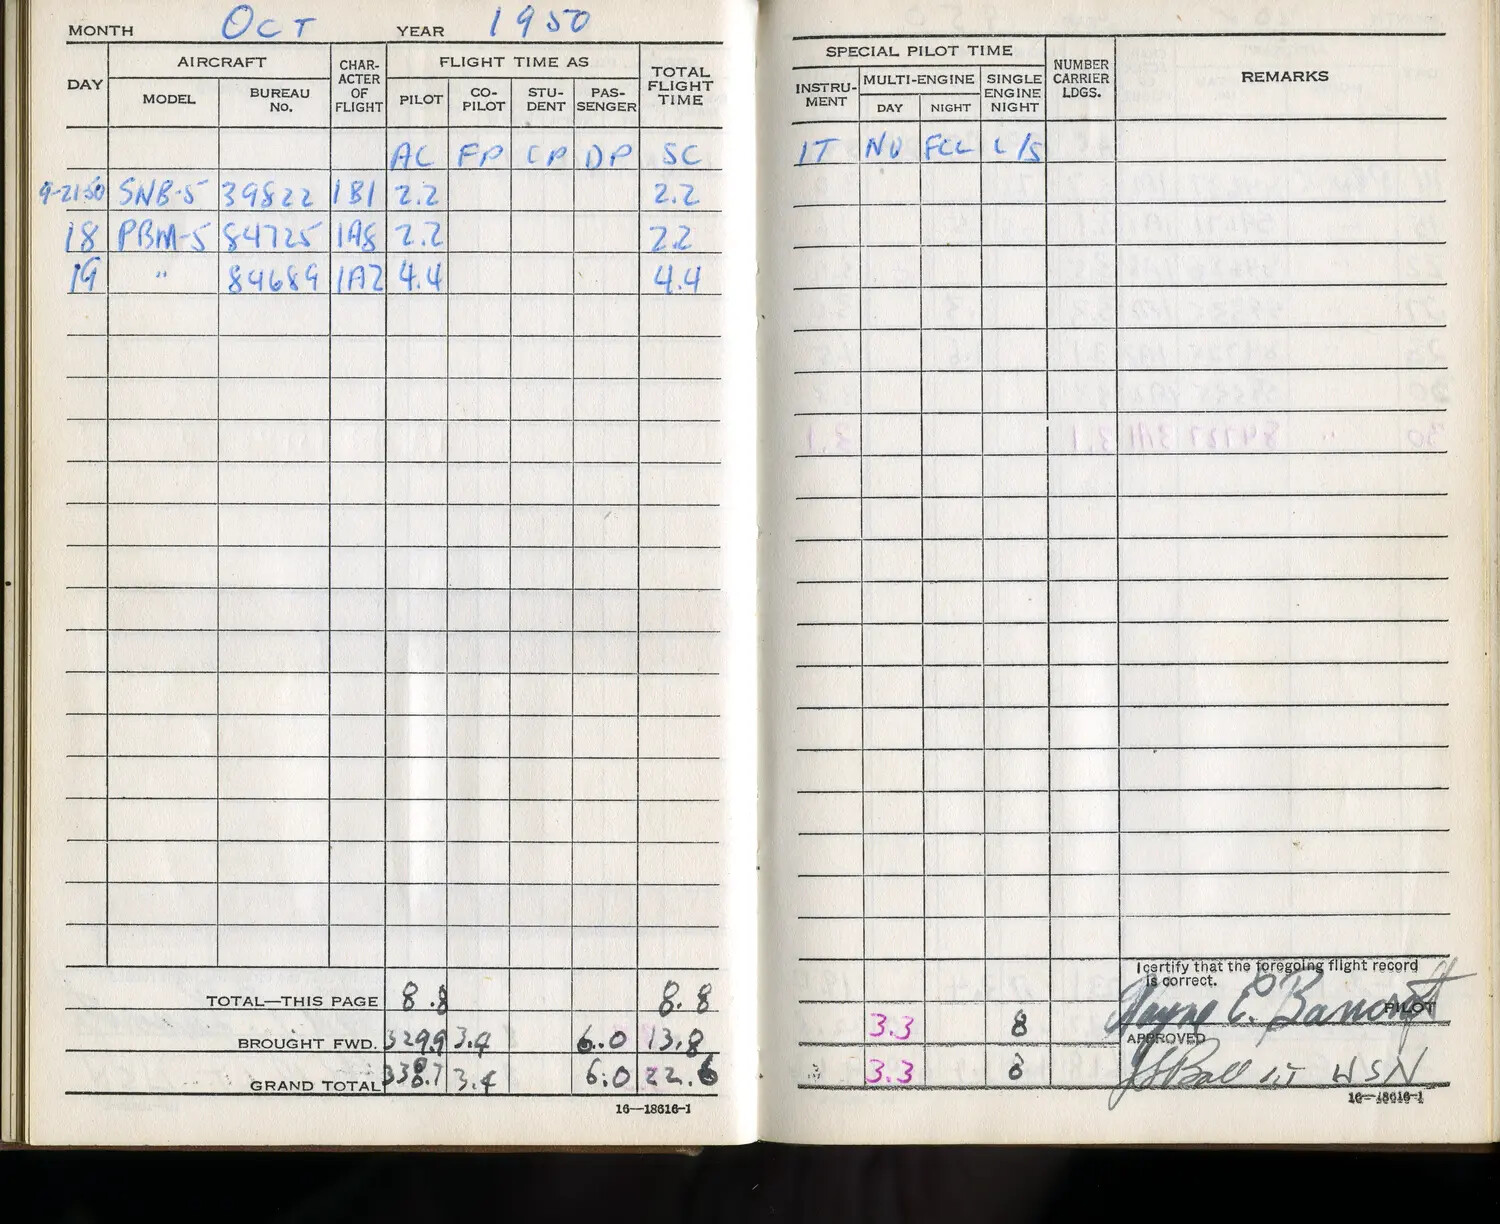 MONTH OCT YEAR 1950
DAY AIRCRAFT CHAR-ACTER OF FLIGHT FLIGHT TIME AS TOTAL FLIGHT TIME
MODEL BUREAU NO. PILOT CO-PILOT STU-DENT PAS-SENGER
AC FP CP DP SC
9-21-50 SNB-5 39822 1B1 2.2 2.2
18 PBM-5 84725 1A8 2.2 2.2
19 " 84689 1A2 4.4 4.4
TOTAL—THIS PAGE 8.8 8.8
BROUGHT FWD. 329.9 3.4 6.0 13.8
GRAND TOTAL 338.7 3.4 6.0 22.6
16—18616-1
SPECIAL PILOT TIME NUMBER CARRIER LDGS. REMARKS
INSTRU-MENT MULTI-ENGINE SINGLE ENGINE NIGHT
DAY NIGHT
IT NU FCL C/S
I certify that the foregoing flight record is correct.
Wayne E. Bancroft
PILOT
3.3 8
APPROVED
3.3 8
JS Ball LT USN
16—18616-1